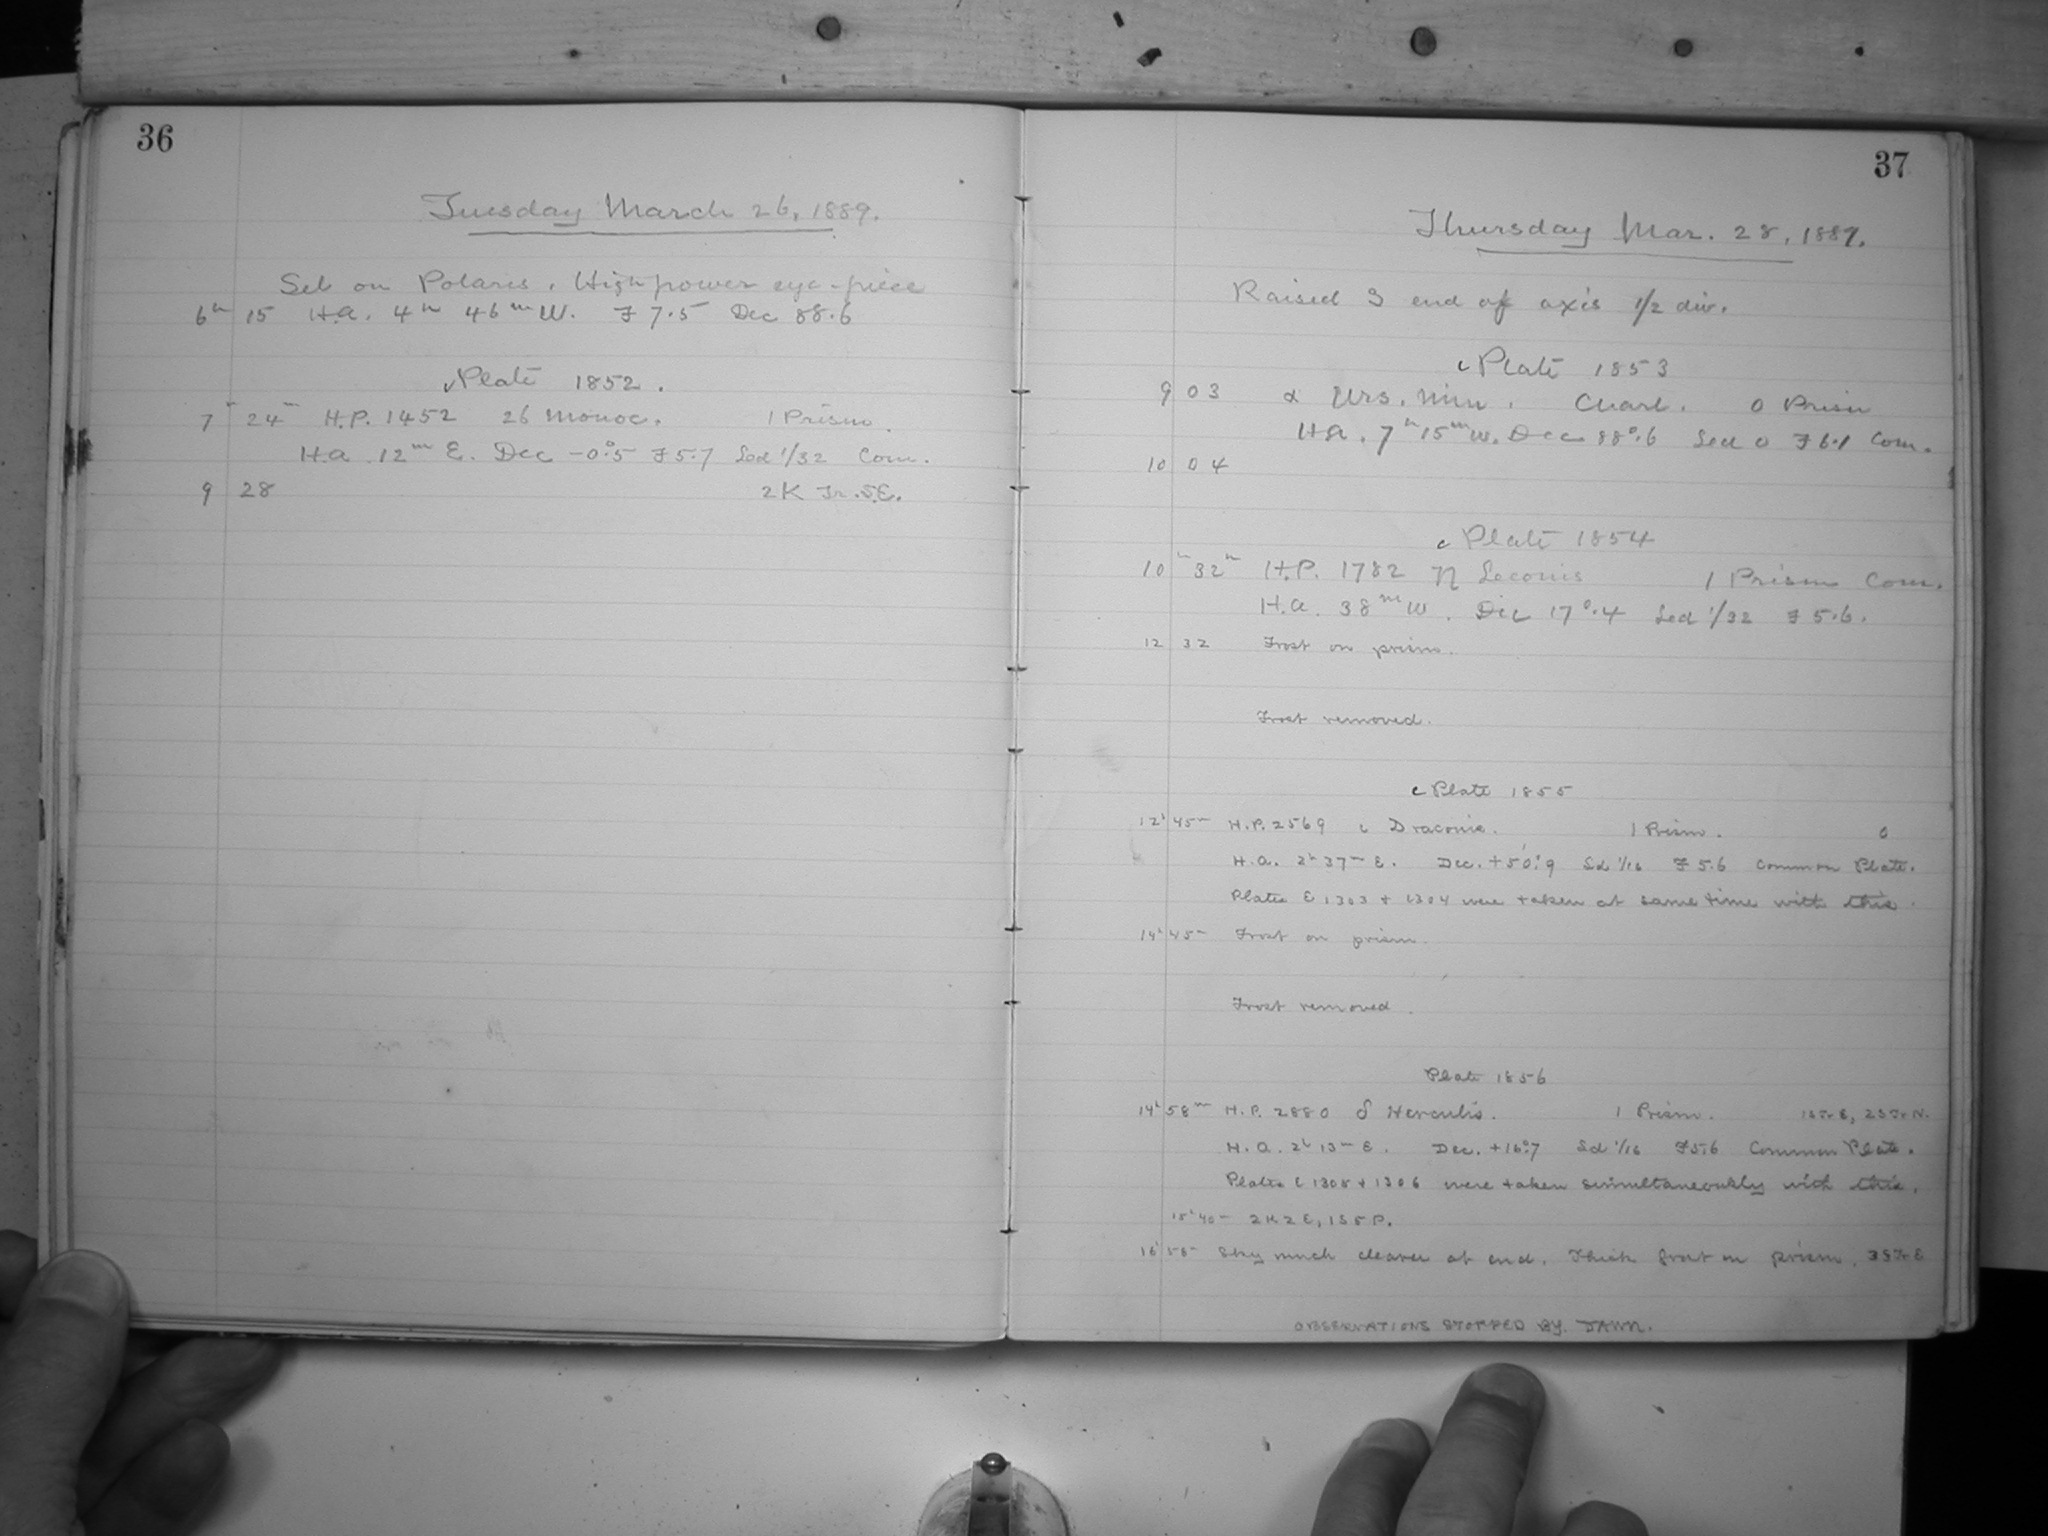 36
Tuesday March 26, 1889.
Set on Polaris. High power eye-piece
6h 15 H.a. 4h 46m W. F 7.5 Dec 88.6
Plate 1852.
7h 24m H.P. 1452 26 Monoc. 1 Prism.
H.a. 12m E. Dec -0°.5 F 5.7 Sed 1/32 Com.
9 28 2K Tr. S.E.
37
Thursday Mar. 28, 1889.
Raised S end of axis 1/2 div.
c Plate 1853
9 03 α Urs. Min. Chart. 0 Prism
H.a. 7h 15m W. Dec 88°.6 Sed 0 F 6.1 Com.
10 04
c Plate 1854
10h 32m H.P. 1782 η Leonis 1 Prism Com.
H.a. 38m W. Dec 17°.4 Sed 1/32 F 5.6.
12 32 Frost on prism.
Frost removed.
c Plate 1855
12h 45m H.P. 2569 ι Draconis. 1 Prism. 0
H.a. 2h 37m E. Dec. +50°.9 Sd 1/16 F 5.6 Common Plate.
Plates E 1303 + 1304 were taken at same time with this.
14h 45m Frost on prism.
Frost removed.
Plate 1856
14h 58m H.P. 2880 δ Herculis. 1 Prism. 1S Tr E, 2S Tr N.
H.a. 2h 13m E. Dec. +16°.7 Sd 1/16 F 5.6 Common Plate.
Plates 1305 + 1306 were taken simultaneously with this.
15h 40m 2K2E, 1S5P.
16h 58m Sky much clearer at end. Thick frost on prism. 3S Tr E
OBSERVATIONS STOPPED BY DAWN.